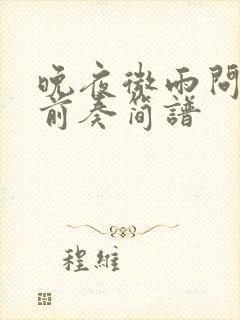 晚夜微雨問
前奏简譜
程維